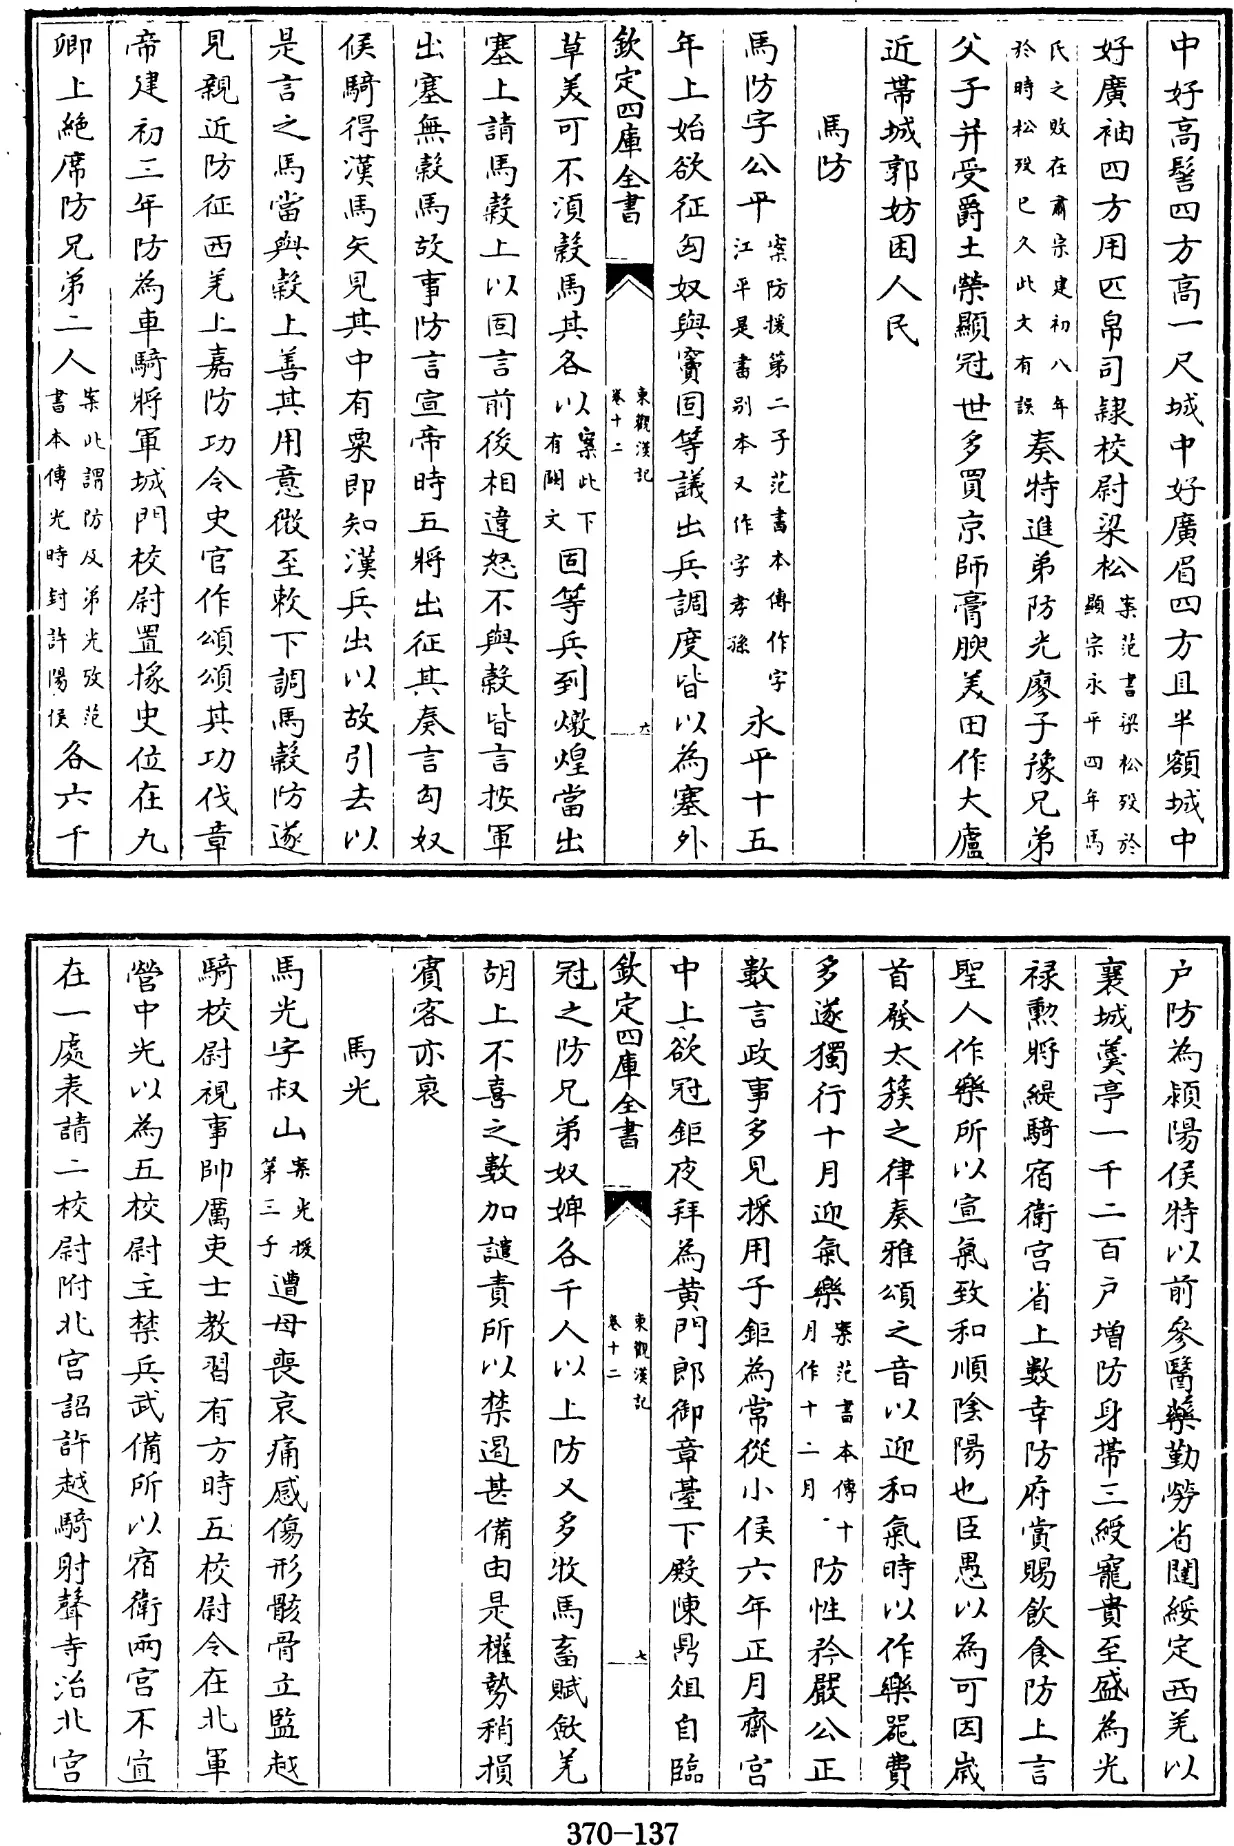 中好高髻四方高一尺城中好廣眉四方且半額城中
好廣袖四方用匹帛司隸校尉梁松案范書梁松歿於顯宗永平四年馬
氏之敗在肅宗建初八年於時松歿已久此文有誤奏特進弟防光廖子豫兄弟
父子并受爵土榮顯冠世多買京師膏腴美田作大廬
近帶城郭妨困人民
馬防
馬防字公平案防援第二子范書本傳作字江平是書別本又作字孝孫永平十五
年上始欲征匈奴與竇固等議出兵調度皆以為塞外
欽定四庫全書
東觀漢記
卷十二
六
草美可不須穀馬其各以案此下有闕文固等兵到燉煌當出
塞上請馬穀上以固言前後相違怒不與穀皆言按軍
出塞無穀馬故事防言宣帝時五將出征其奏言匈奴
候騎得漢馬矢見其中有粟即知漢兵出以故引去以
是言之馬當與穀上善其用意微至敕下調馬穀防遂
見親近防征西羌上嘉防功令史官作頌頌其功伐章
帝建初三年防為車騎將軍城門校尉置掾史位在九
卿上絶席防兄弟二人案此謂防及弟光攷范書本傳光時封許陽侯各六千
户防為潁陽侯特以前參醫藥勤勞省闥綏定西羌以
襄城羹亭一千二百户增防身帶三綬寵貴至盛為光
禄勲將緹騎宿衛宫省上數幸防府賞賜飲食防上言
聖人作樂所以宣氣致和順陰陽也臣愚以為可因歲
首發太簇之律奏雅頌之音以迎和氣時以作樂器費
多遂獨行十月迎氣樂案范書本傳十月作十二月防性矜嚴公正
數言政事多見採用子鉅為常從小侯六年正月齋宫
中上欲冠鉅夜拜為黄門郎御章臺下殿陳鼎俎自臨
欽定四庫全書
東觀漢記
卷十二
七
冠之防兄弟奴婢各千人以上防又多牧馬畜賦斂羌
胡上不喜之數加譴責所以禁遏甚備由是權勢稍損
賓客亦衰
馬光
馬光字叔山案光援第三子遭母喪哀痛感傷形骸骨立監越
騎校尉視事帥厲吏士教習有方時五校尉令在北軍
營中光以為五校尉主禁兵武備所以宿衛兩宫不宜
在一處表請二校尉附北宫詔許越騎射聲寺治北宫
370-137